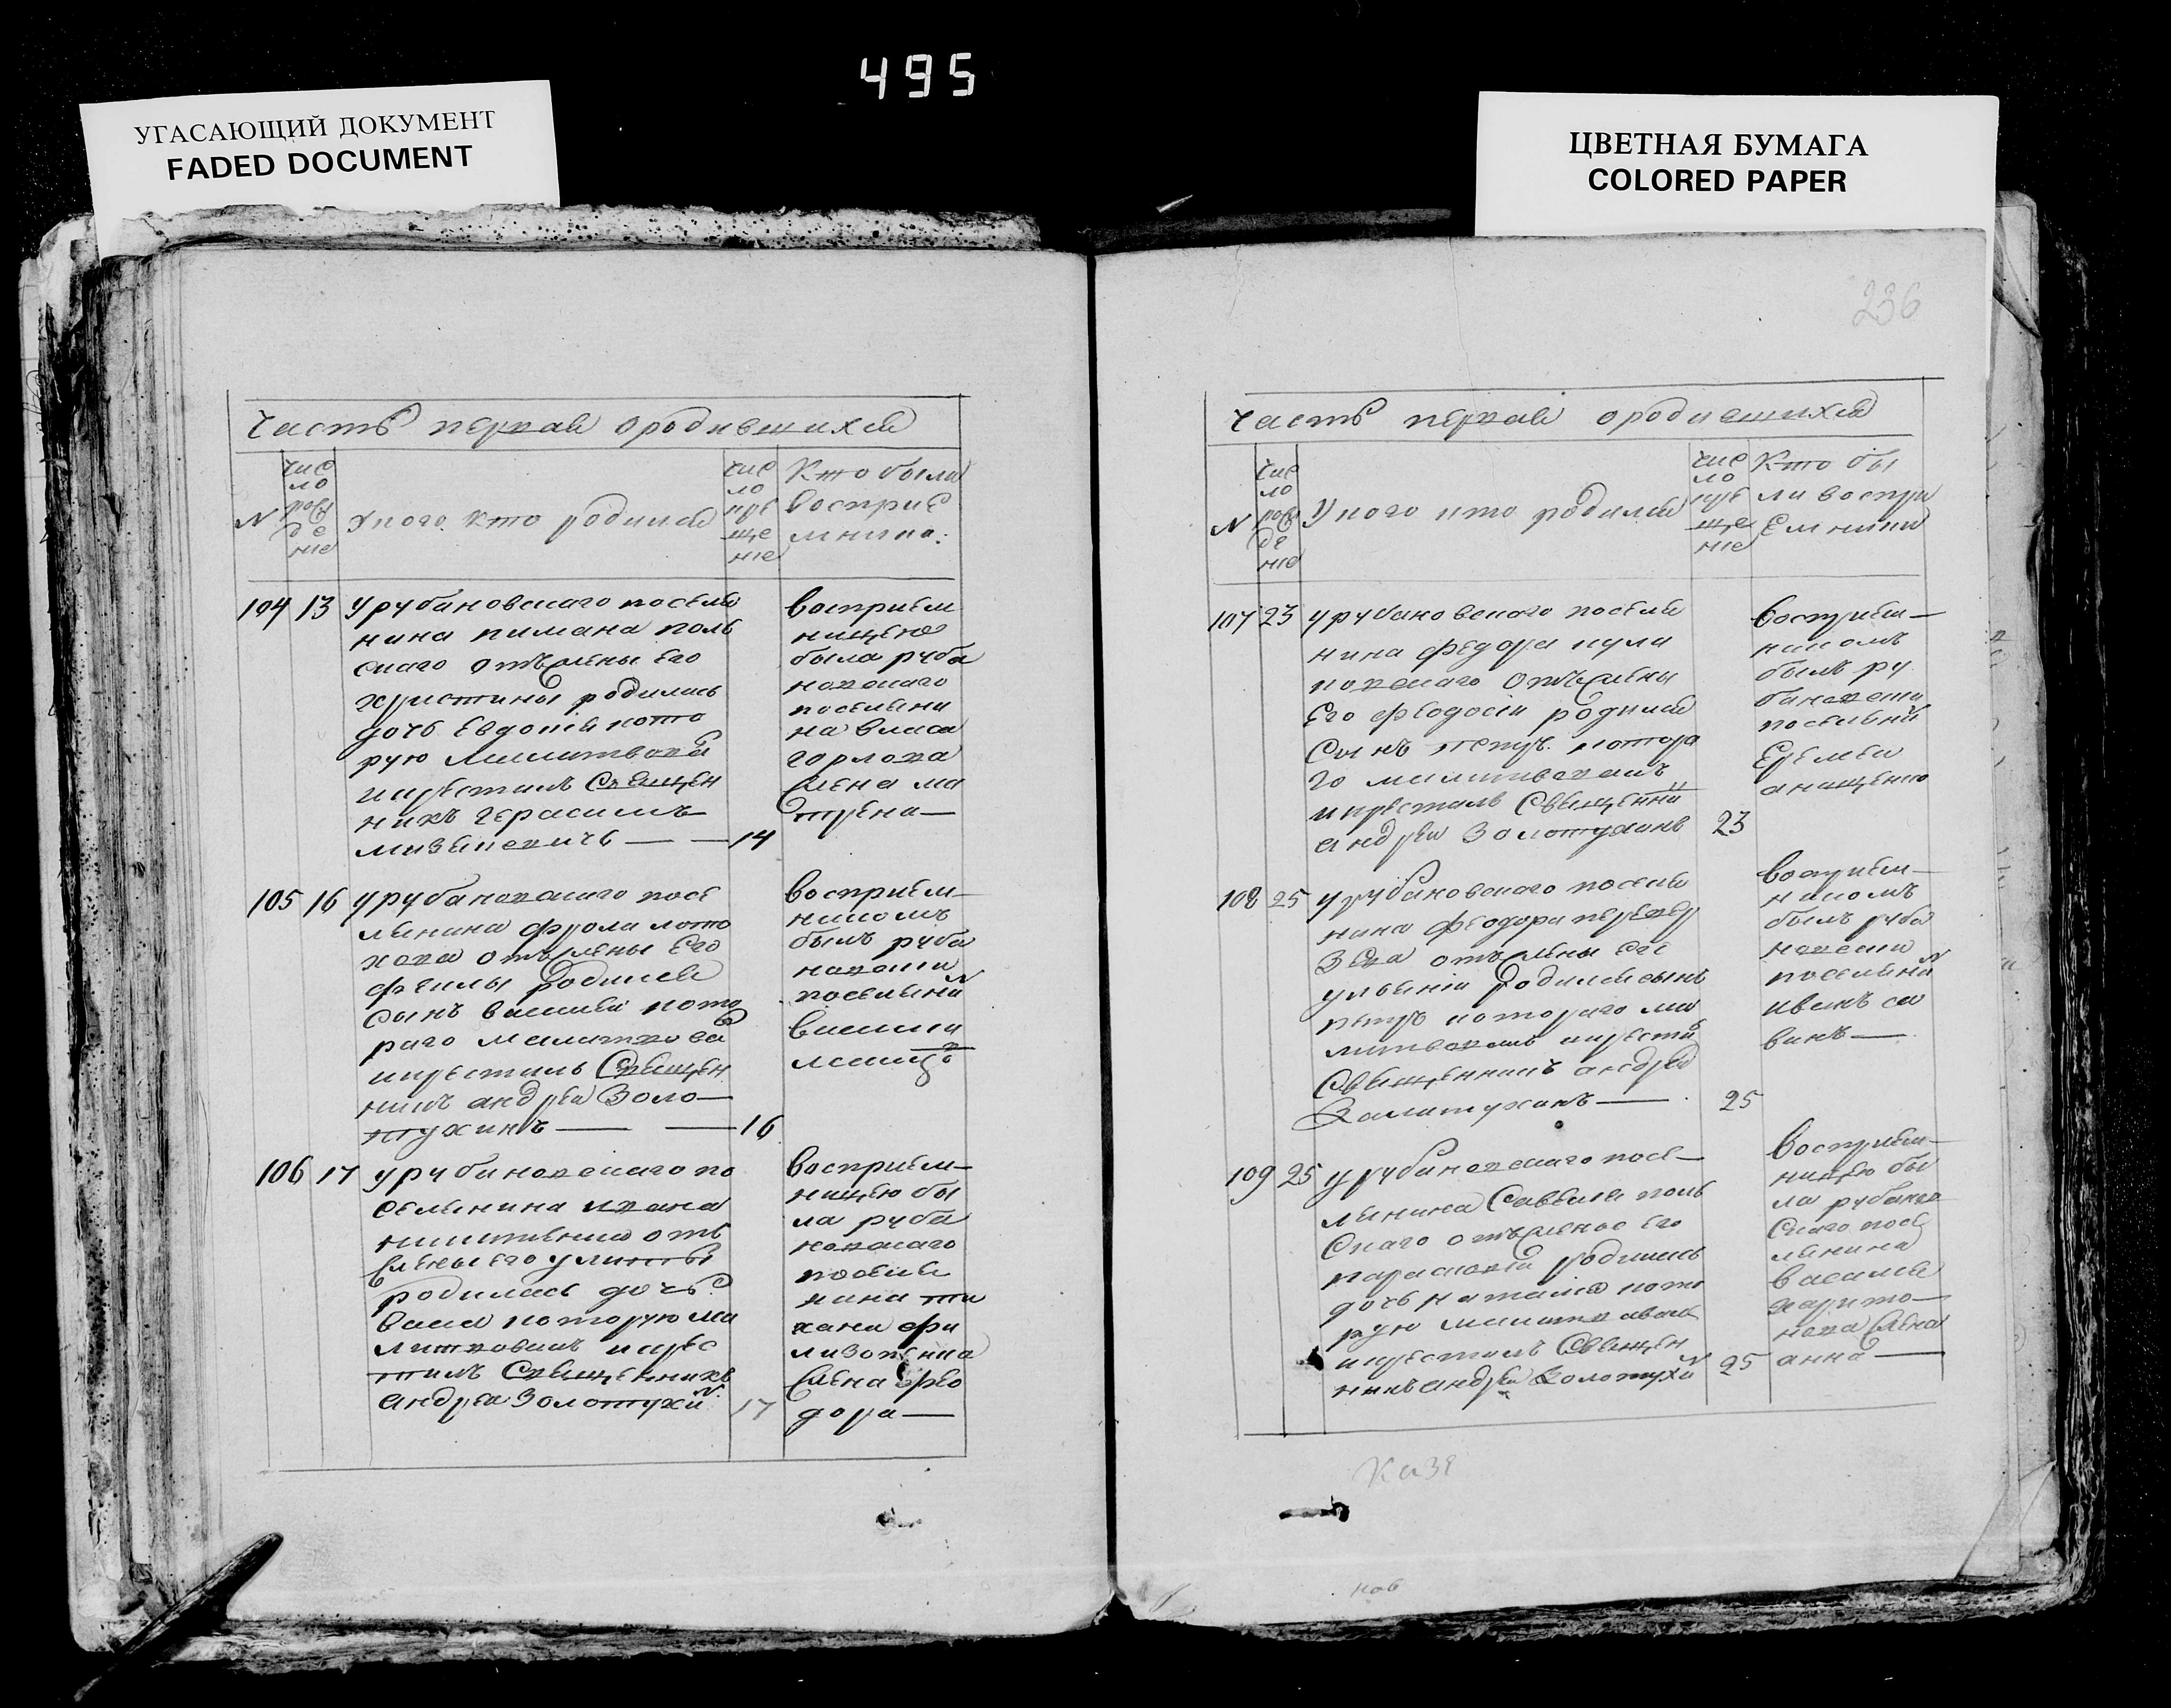 495
УГАСАЮЩИЙ ДОКУМЕНТ
FADED DOCUMENT
ЦВЕТНАЯ БУМАГА
COLORED PAPER
часть первая ородившихся
N
чис
ло
рож
де
ние
укого кто родился
чис
ло
кре
ще
ние
Кто были
восприе
мники
104 13
урубановскаго поселя
нина
отъ жены его
христины родилась
дочь Евдокия кото
рую
икрестилъ Священ
никъ герасимъ
14
восприем
ницею
была руба
новскаго
поселяни
на власа
горлова
жена ма
трена
105 16
урубановскаго посе
лянина фрола
отъ жены его
феклы родился
сынъ василий кото
раго молитвова
икрестилъ Священ
никъ андрей Золо
тухинъ 16
восприем
никомъ
былъ руба
новский
поселянин
василий
106 17
урубановскаго по
селянина ивана
отъ
жены его
родилась дочь
васса которую мо
литвовалъ икрес
тилъ Священникъ
андрей Золотухин 17
восприем
ницею бы
ла руба
новскаго
поселя
нина ти
хана фи
жена фео
дора
236
часть первая ородившихся
N
чис
ло
рож
де
ние
Укого кто родился
чис
ло
кре
ще
ние
Кто бы
ли воспри
Емники
107 23
урубановскаго поселя
нина федора кули
ковскаго отъ жены
Его феодосии родился
сынъ петръ котора
го молитвовалъ
икрестилъ Священни
андрей Золотухинъ 23
восприем
никомъ
былъ ру
бановски
поселянин
Еремей
онищенко
108 25
урубановскаго поселя
нина феодора
отъ жены Его
ульянии родился сынъ
петръ котораго мо
литвовалъ икрести
Священникъ андрей
Золотухинъ 25
восприем
никомъ
былъ руба
новский
поселянин
иванъ са
винъ
109 25
урубановскаго посе
лянина Савелия поль
скаго отъ жены его
параскевии родилась
дочь наталия кото
рую молитвовалъ
икрестилъ Священ
никъ андрей Золотухин 25
восприем
ницею бы
ла рубанов
скаго посе
лянина
василия
харито
нова жена
анна